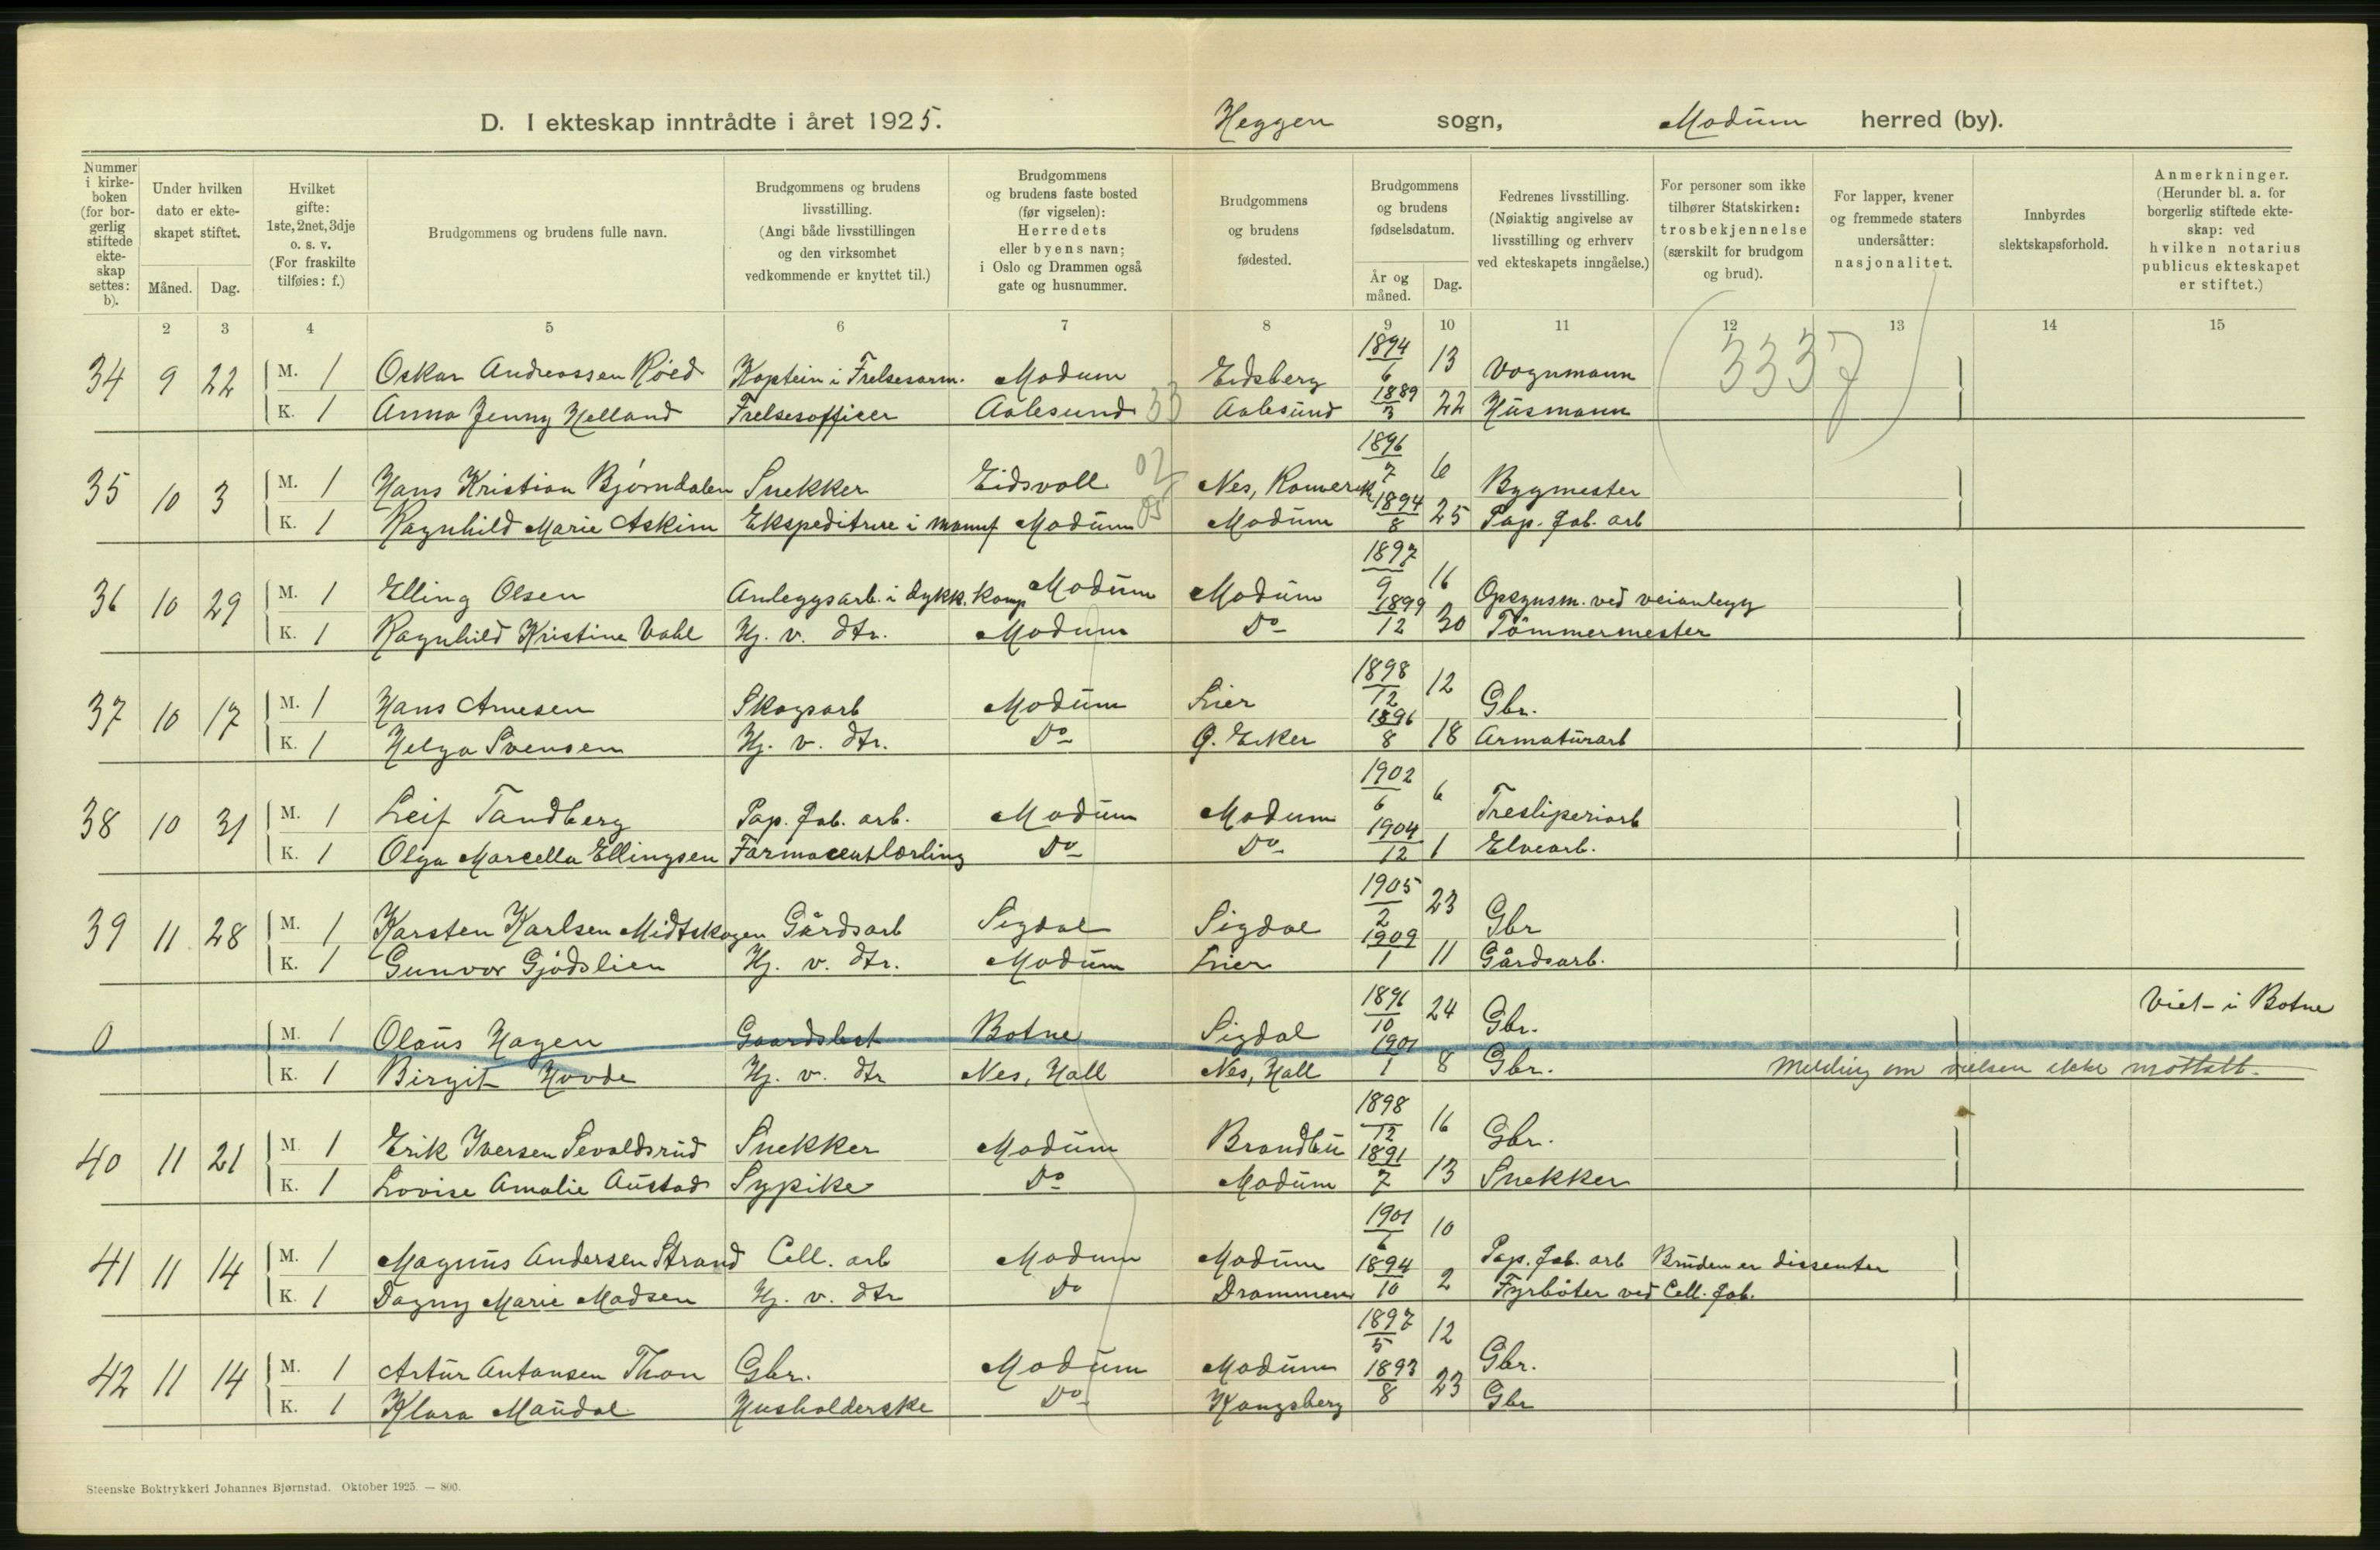 D. I ekteskap inntrådte i året 1925. Heggen sogn, Modum herred (by).
Nummer i kirke-boken (for bor-gerlig stiftede ekte-skap settes: b).
Under hvilken dato er ekte-skapet stiftet.
Måned. Dag.
Hvilket gifte: 1ste, 2net, 3dje o. s. v. (For fraskilte tilføies: f.)
Brudgommens og brudens fulle navn.
Brudgommens og brudens livsstilling. (Angi både livsstillingen og den virksomhet vedkommende er knyttet til.)
Brudgommens og brudens faste bosted (før vigselen): Herredets eller byens navn; i Oslo og Drammen også gate og husnummer.
Brudgommens og brudens fødested.
Brudgommens og brudens fødselsdatum.
År og måned. Dag.
Fedrenes livsstilling. (Nøiaktig angivelse av livsstilling og erhverv ved ekteskapets inngåelse.)
For personer som ikke tilhører Statskirken: trosbekjennelse (særskilt for brudgom og brud).
For lapper, kvener og fremmede staters undersåtter: nasjonalitet.
Innbyrdes slektskapsforhold.
Anmerkninger. (Herunder bl. a. for borgerlig stiftede ekte-skap: ved hvilken notarius publicus ekteskapet er stiftet.)
2 3 4 5 6 7 8 9 10 11 12 13 14 15
(3337)
34 9 22 M. 1 Oskar Andreassen Röed Kaptein i Frelsesarm. Modum Eidsberg 1894/6 13 Vognmann
K. 1 Anna Jenny Helland Frelsesofficer Aalesund 33 Aalesund 1889/3 22 Husmann
35 10 3 M. 1 Hans Kristian Björndalen Snekker Eidsvoll 02 Nes, Romerik 1896/7 6 Bygmester
K. 1 Ragnhild Marie Askim Ekspeditrise i manuf Modum 05 Modum 1894/8 25 Pap. fab. arb
36 10 29 M. 1 Elling Olsen Anleggsarb. i dykk. komp Modum Modum 1897/9 16 Opsynsm. ved veianlegg
K. 1 Ragnhild Kristine Vahl Hj. v. dtr. Modum Do 1899/12 30 Tömmermester
37 10 17 M. 1 Hans Arnesen Skogsarb Modum Lier 1898/12 12 Gbr.
K. 1 Helga Svensen Hj. v. dtr. Do Ø. Eiker 1896/8 18 Armaturarb
38 10 31 M. 1 Leif Tandberg Pap. fab. arb. Modum Modum 1902/6 6 Tresliperiarb
K. 1 Olga Marcella Ellingsen Farmaceutlærling Do Do 1904/12 1 Elvearb.
39 11 28 M. 1 Karsten Karlsen Midtskogen Gårdsarb Sigdal Sigdal 1905/2 23 Gbr
K. 1 Gunvor Gjödslien Hj. v. dtr. Modum Lier 1909/1 11 Gårdsarb.
0 M. 1 Olaus Hagen Gaardsbest Botne Sigdal 1896/10 24 Gbr. Viet i Botne
K. 1 Birgit Hovde Hj. v. dtr Nes, Hall Nes, Hall 1901/1 8 Gbr. Melding om vielsen ikke mottatt.
40 11 21 M. 1 Erik Iversen Sevaldsrud Snekker Modum Brandbu 1898/12 16 Gbr.
K. 1 Lovise Amalie Austad Sypike Do Modum 1891/7 13 Snekker
41 11 14 M. 1 Magnus Andersen Strand Cell. arb Modum Modum 1901/6 10 Pap. fab. arb Bruden er dissenter
K. 1 Dagny Marie Madsen Hj. v. dtr Do Drammen 1894/10 2 Fyrböter ved Cell. fab.
42 11 14 M. 1 Artur Antonsen Thon Gbr. Modum Modum 1897/5 12 Gbr.
K. 1 Klara Maudal Husholderske Do Kongsberg 1893/8 23 Gbr
Steenske Boktrykkeri Johannes Bjørnstad. Oktober 1925. — 800.